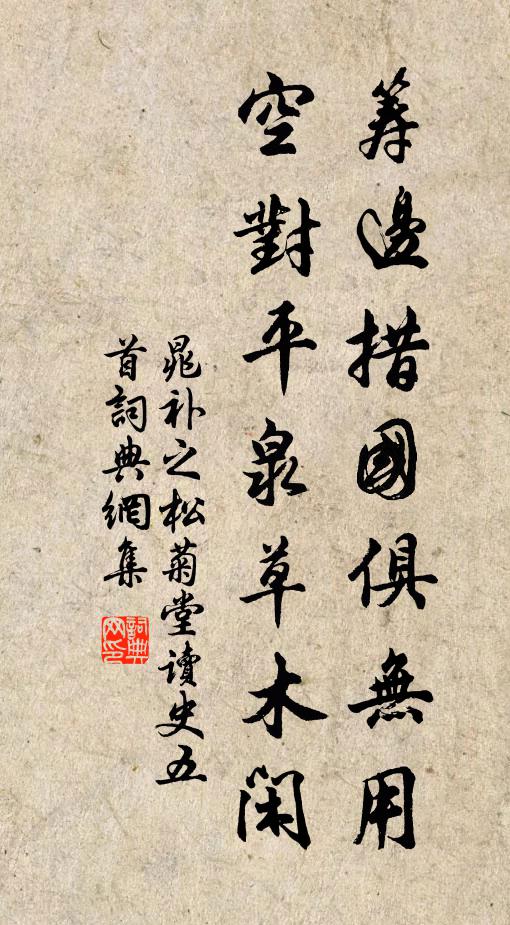 籌邊措國俱無用
空對平泉草木閑
晁补之松菊堂讀史五
首詞典網集
詞典网印